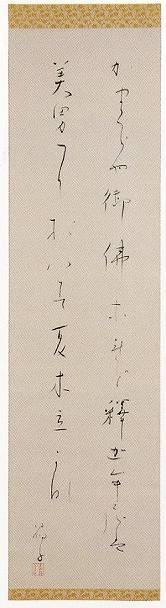 かまくらや御佛なれど釋迦牟尼は
美男におハす夏木立かな
晶子